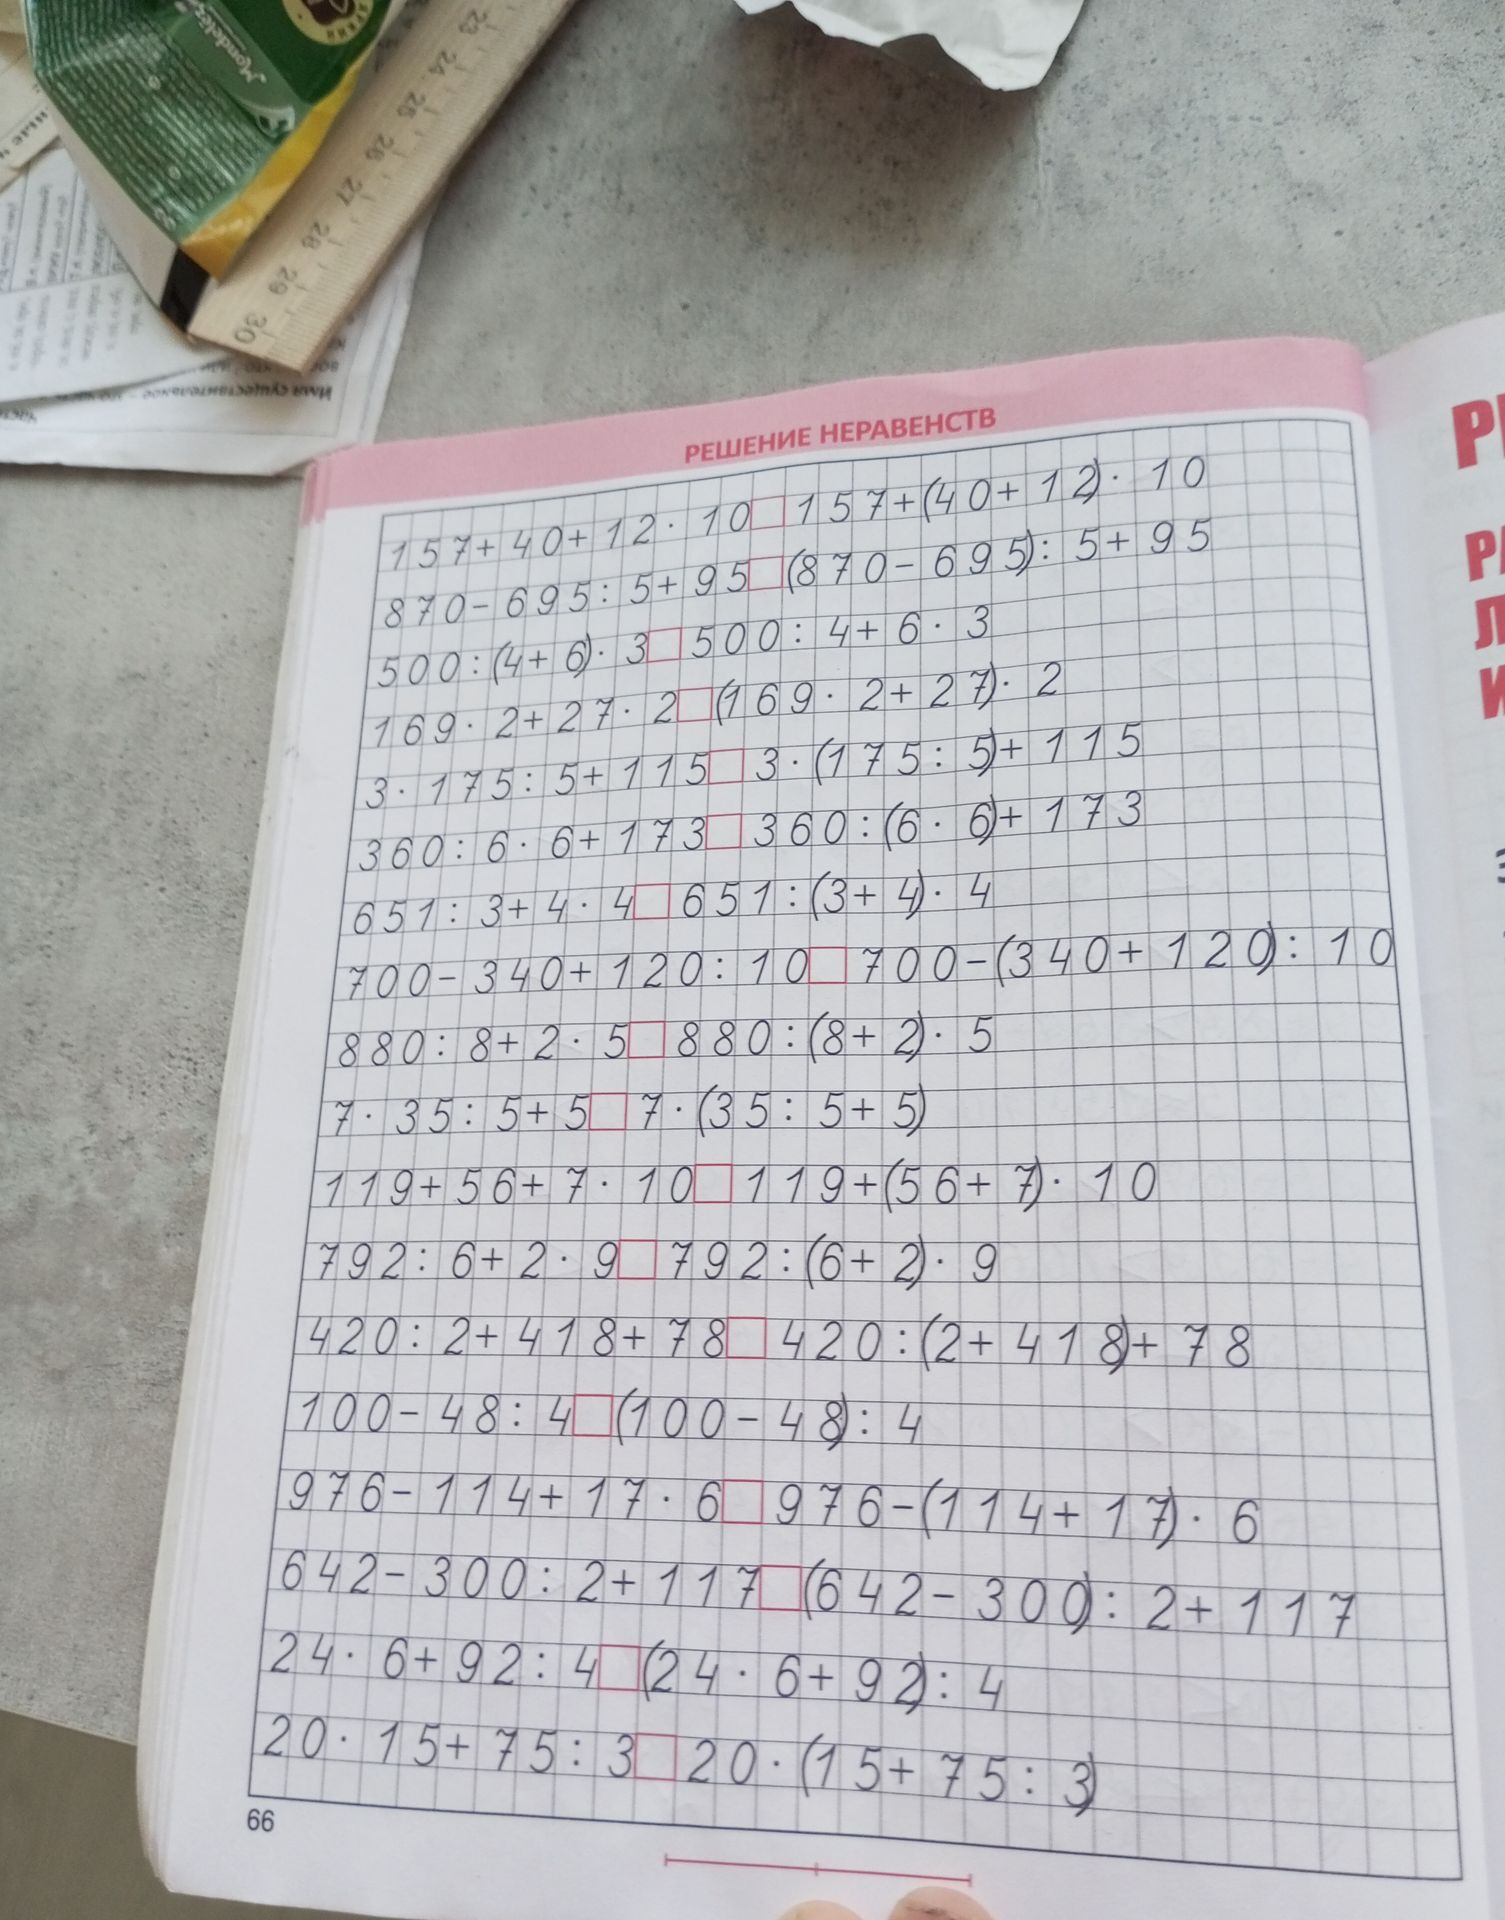 Mondelēz
23
24
25
26
27
28
29
30
Имя существительное
РЕШЕНИЕ НЕРАВЕНСТВ
157+40+12·10□157+(40+12)·10
870-695:5+95□(870-695):5+95
500:(4+6)·3□500:4+6·3
169·2+27·2□(169·2+27)·2
3·175:5+115□3·(175:5)+115
360:6·6+173□360:(6·6)+173
651:3+4·4□651:(3+4)·4
700-340+120:10□700-(340+120):10
880:8+2·5□880:(8+2)·5
7·35:5+5□7·(35:5+5)
119+56+7·10□119+(56+7)·10
792:6+2·9□792:(6+2)·9
420:2+418+78□420:(2+418)+78
100-48:4□(100-48):4
976-114+17·6□976-(114+17)·6
642-300:2+117□(642-300):2+117
24·6+92:4□(24·6+92):4
20·15+75:3□20·(15+75:3)
66